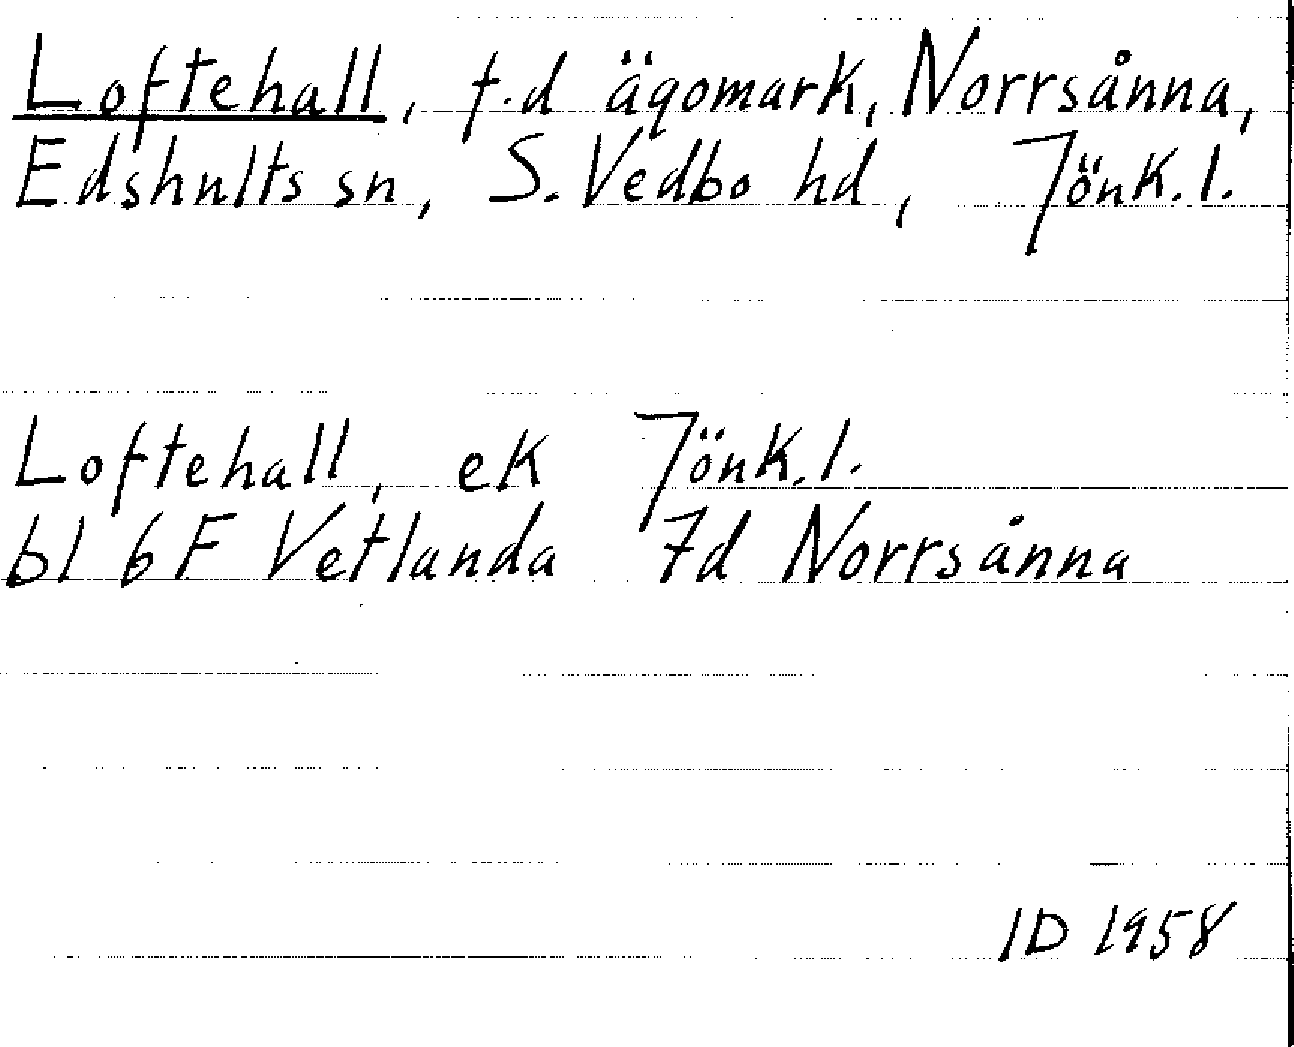 Loftehall, f.d ägomark, Norrsånna,
Edshults sn, S. Vedbo hd, Jönk. l.
Loftehall, ek Jönk. l.
bl 6 F Vetlanda 7d Norrsånna
ID 1958